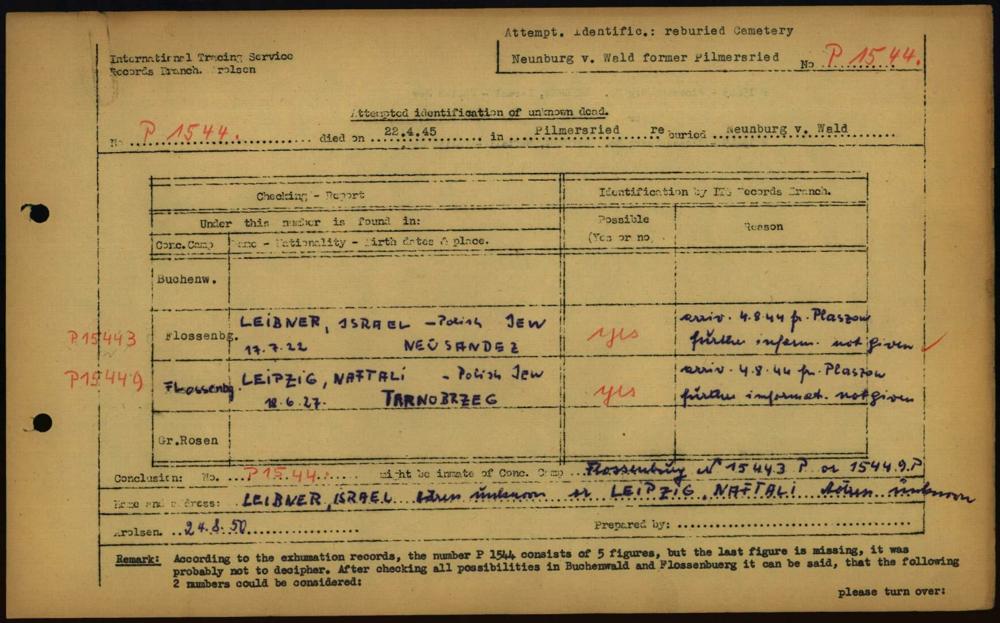 Attempt. Identific.: reburied Cemetery
Neunburg v. Wald former Pilmersried No P 1544.
International Tracing Service
Records Branch. Arolsen
Attempted identification of unknown dead.
No P 1544. died on 22.4.45 in Pilmersried reburied Neunburg v. Wald
Checking - Report
Identification by ITS Records Branch.
Under this number is found in:
Possible
(Yes or no)
Reason
Conc.Camp
Name - Nationality - Birth dates & place.
Buchenw.
P15443 Flossenbg. LEIBNER, ISRAEL - Polish JEW yes arriv. 4.8.44 fr. Plaszow
17.7.22 NEUSANDEZ further inform. not given
P15449 Flossenbg. LEIPZIG, NAFTALI - Polish Jew yes arriv. 4.8.44 fr. Plaszow
18.6.27. TARNOBRZEG further informat. not given
Gr.Rosen
Conclusion: No. P 1544. might be inmate of Conc. Camp Flossenburg No 15443 P or 15449.P
Name and address: LEIBNER, ISRAEL or LEIPZIG, NAFTALI
Arolsen. 24.8.50 Prepared by:
Remark: According to the exhumation records, the number P 1544 consists of 5 figures, but the last figure is missing, it was
probably not to decipher. After checking all possibilities in Buchenwald and Flossenbuerg it can be said, that the following
2 numbers could be considered:
please turn over: